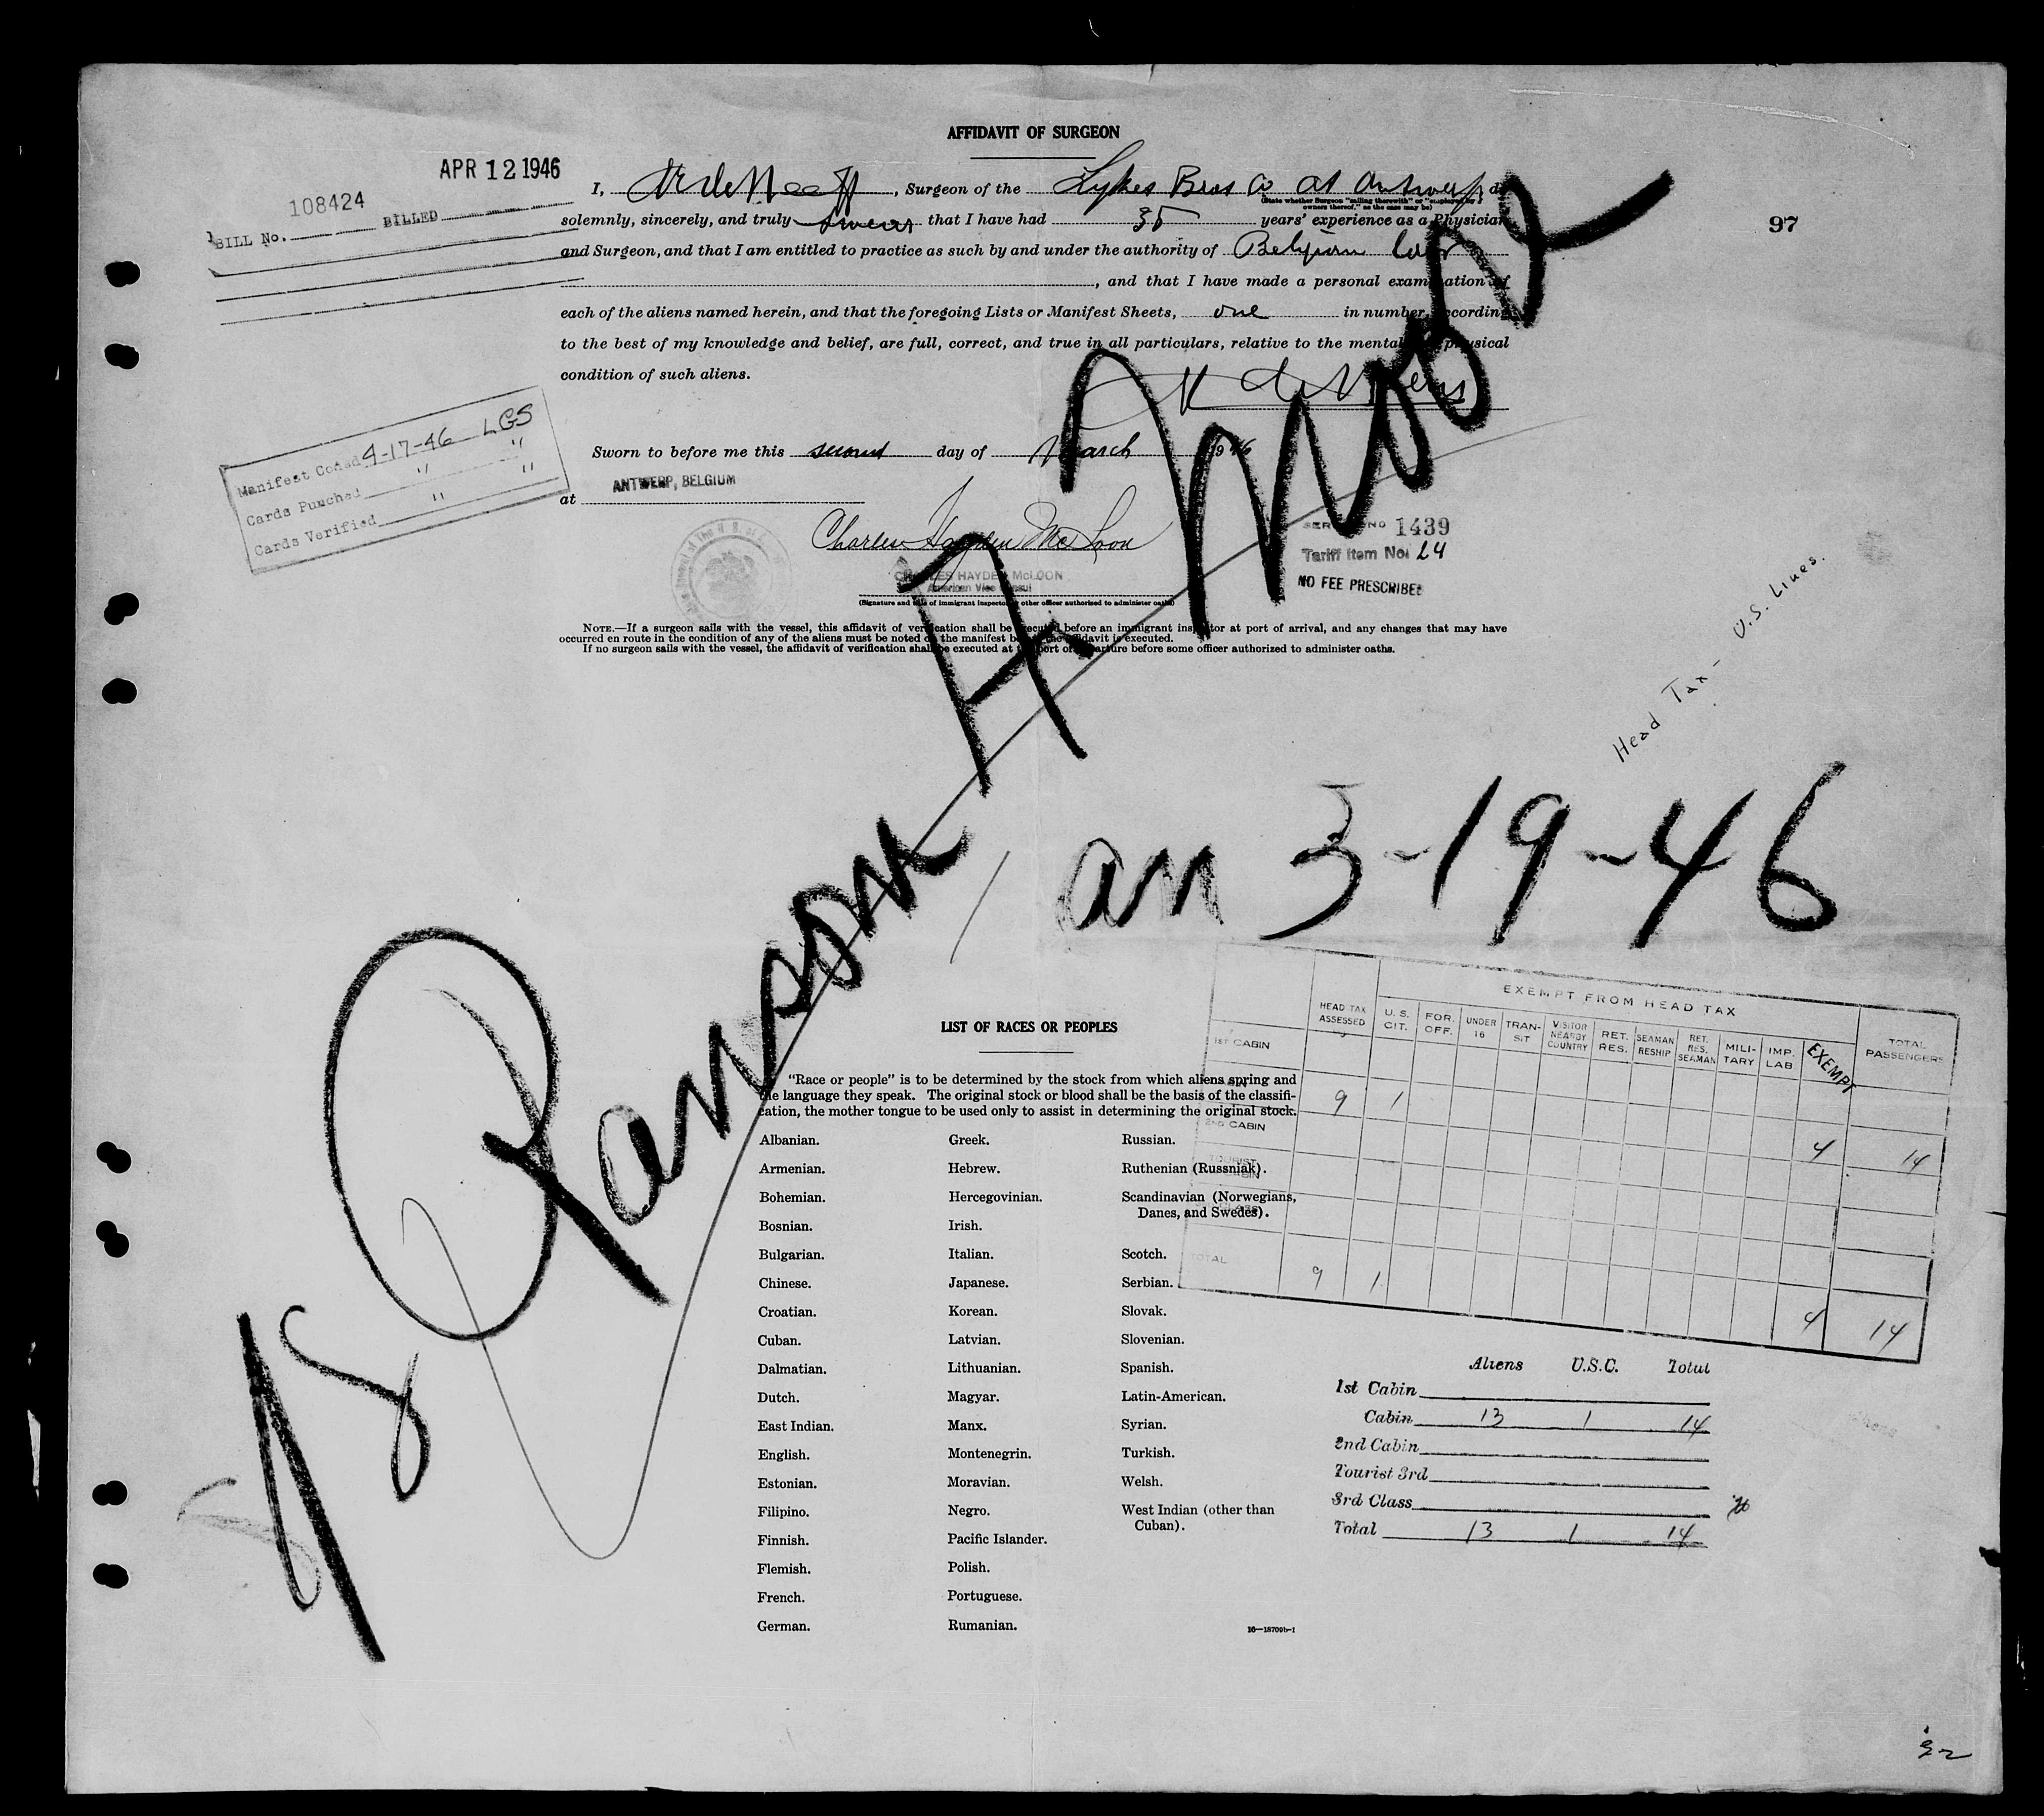 AFFIDAVIT OF SURGEON
APR 12 1946
108424
BILL No. BILLED
97
I, , Surgeon of the Lykes Bros Co at Antwerp do
(State whether Surgeon "sailing therewith" or "employed by owners thereof," as the case may be)
solemnly, sincerely, and truly swear that I have had 35 years' experience as a Physician
and Surgeon, and that I am entitled to practice as such by and under the authority of Belgian law
, and that I have made a personal examination of
each of the aliens named herein, and that the foregoing Lists or Manifest Sheets, one in number, according
to the best of my knowledge and belief, are full, correct, and true in all particulars, relative to the mental and physical
condition of such aliens.
Manifest Coded 4-17-46 LGS
Cards Punched " "
Cards Verified " "
Sworn to before me this second day of March 1946
at ANTWERP, BELGIUM
Charles Hayden McLoon
CHARLES HAYDEN McLOON
American Vice Consul
(Signature and title of immigrant inspector or other officer authorized to administer oaths)
SERVICE NO 1439
Tariff Item No. 24
NO FEE PRESCRIBED
NOTE.—If a surgeon sails with the vessel, this affidavit of verification shall be executed before an immigrant inspector at port of arrival, and any changes that may have
occurred en route in the condition of any of the aliens must be noted on the manifest before the affidavit is executed.
If no surgeon sails with the vessel, the affidavit of verification shall be executed at the port of departure before some officer authorized to administer oaths.
Head Tax - U.S. Lines.
SS Ransom A. Moore
arr 3-19-46
EXEMPT FROM HEAD TAX
HEAD TAX ASSESSED U. S. CIT. FOR. OFF. UNDER 16 TRANSIT VISITOR NEARBY COUNTRY RET. RES. SEAMAN RESHIP RET. RES. SEAMAN MILITARY IMP. LAB EXEMPT TOTAL PASSENGERS
1ST CABIN
CABIN 9 1 4 14
2ND CABIN
TOURIST CABIN
TOTAL 9 1 4 14
LIST OF RACES OR PEOPLES
"Race or people" is to be determined by the stock from which aliens spring and
the language they speak. The original stock or blood shall be the basis of the classifi-
cation, the mother tongue to be used only to assist in determining the original stock.
Albanian.
Armenian.
Bohemian.
Bosnian.
Bulgarian.
Chinese.
Croatian.
Cuban.
Dalmatian.
Dutch.
East Indian.
English.
Estonian.
Filipino.
Finnish.
Flemish.
French.
German.
Greek.
Hebrew.
Hercegovinian.
Irish.
Italian.
Japanese.
Korean.
Latvian.
Lithuanian.
Magyar.
Manx.
Montenegrin.
Moravian.
Negro.
Pacific Islander.
Polish.
Portuguese.
Rumanian.
Russian.
Ruthenian (Russniak).
Scandinavian (Norwegians,
Danes, and Swedes).
Scotch.
Serbian.
Slovak.
Slovenian.
Spanish.
Latin-American.
Syrian.
Turkish.
Welsh.
West Indian (other than
Cuban).
16—18709b-1
Aliens U.S.C. Total
1st Cabin
Cabin 13 1 14
2nd Cabin
Tourist 3rd
3rd Class
Total 13 1 14